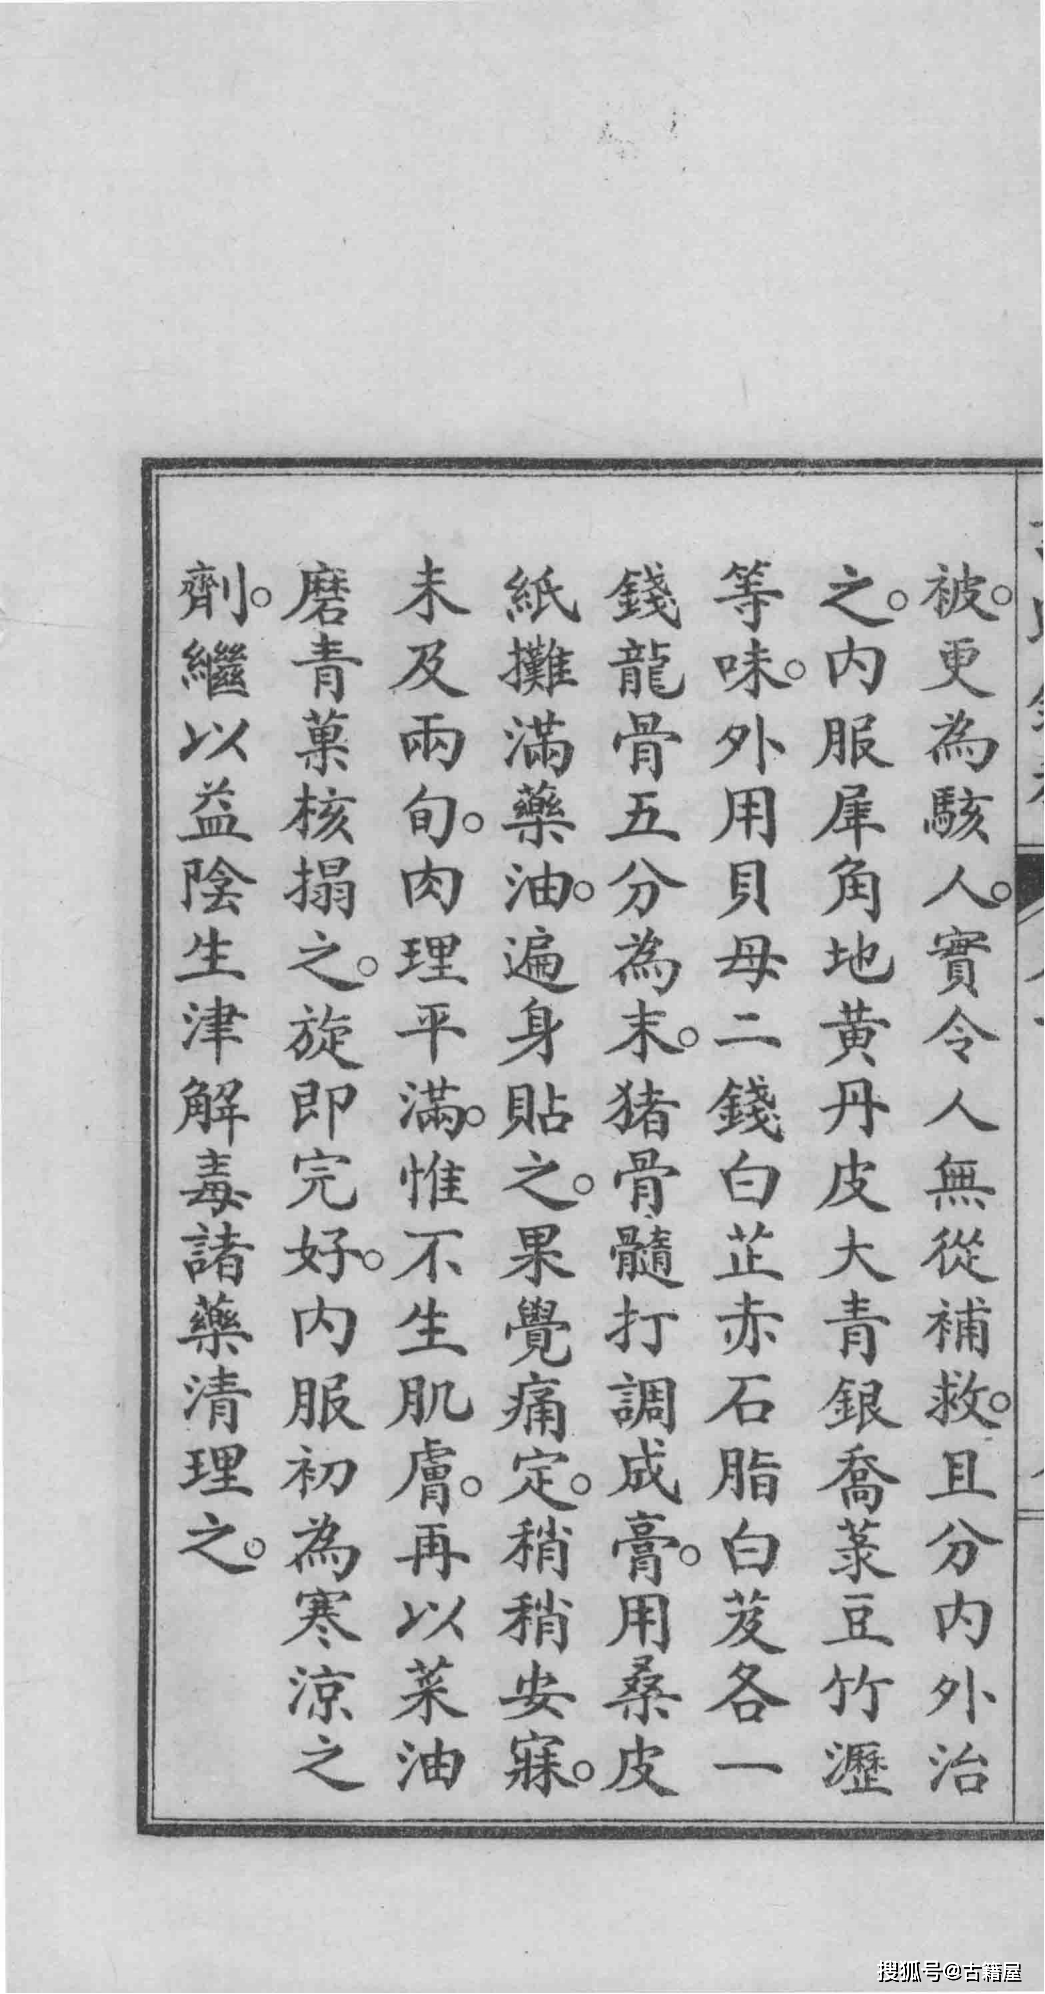 被。更為駭人。實令人無從補救。且分內外治
之。內服犀角地黃丹皮大青銀喬菉豆竹瀝
等味。外用貝母二錢白芷赤石脂白芨各一
錢龍骨五分為末。猪骨髓打調成膏。用桑皮
紙攤滿藥油。遍身貼之。果覺痛定。稍稍安寐。
未及兩旬。肉理平滿。惟不生肌膚。再以菜油
磨青菓核搨之。旋即完好。內服初為寒涼之
劑。繼以益陰生津解毒諸藥清理之。
搜狐号@古籍屋